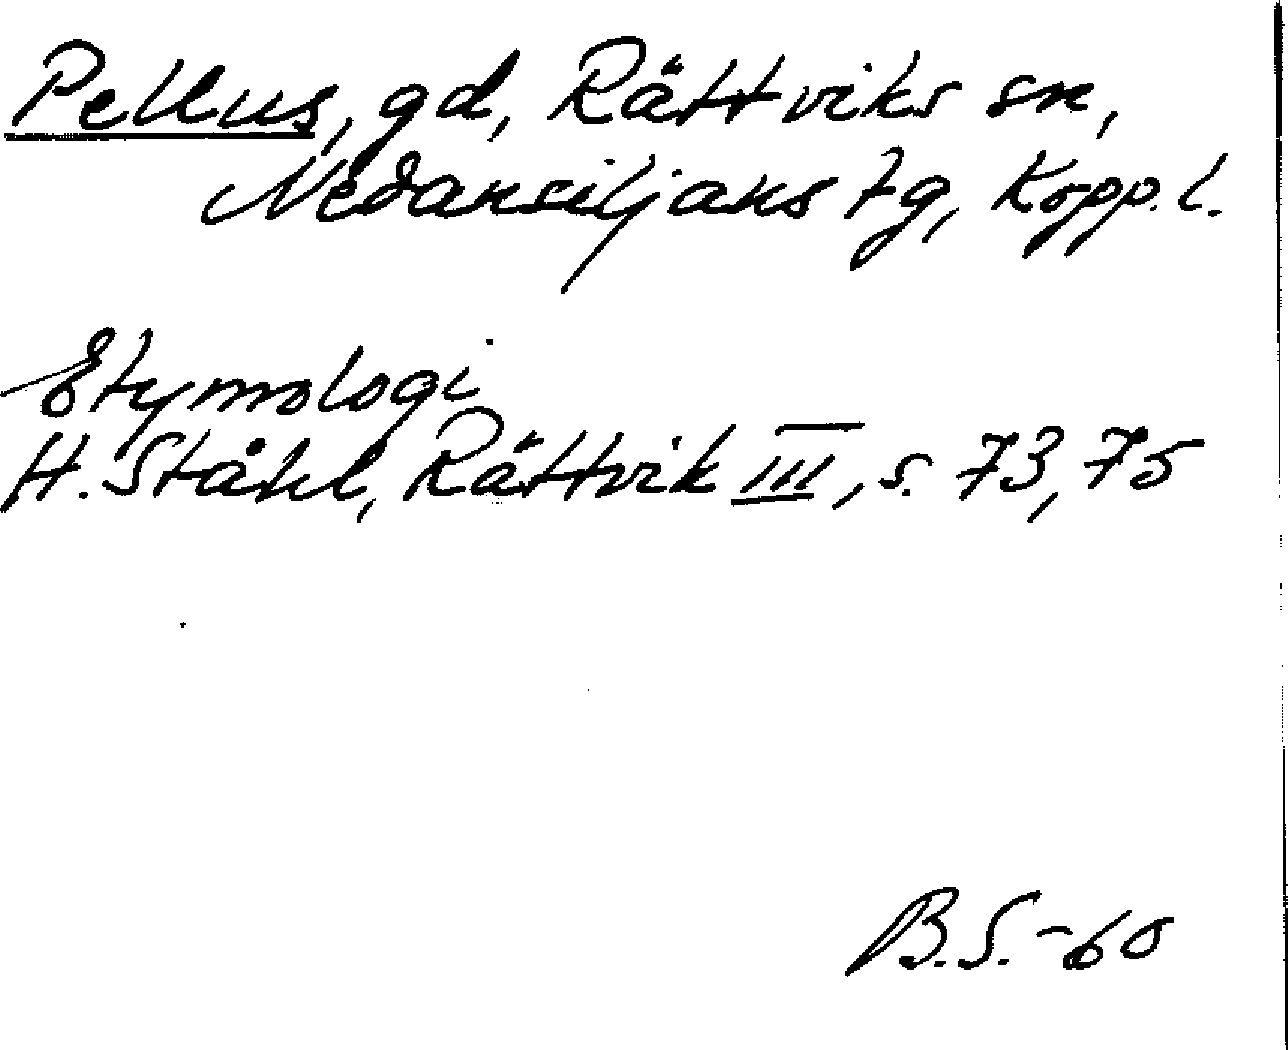 Pellus, gd, Rättviks sn,
Nedansiljans tg, Kopp. l.
Etymologi
H. Ståhl, Rättvik III, s. 73, 75
B.S.-60